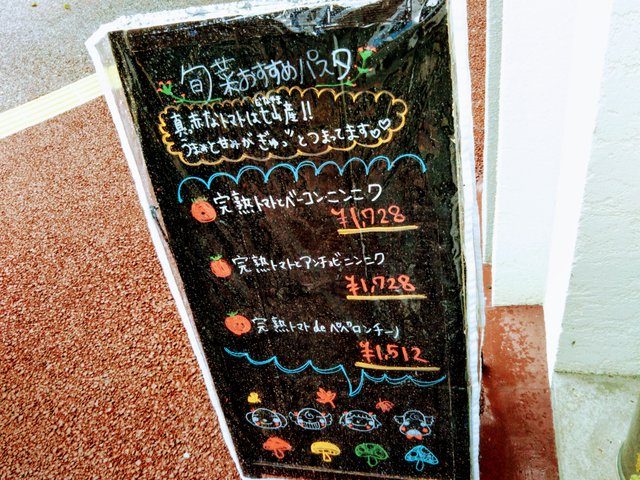 旬菜おすすめパスタ
真っ赤なトマトは七山産!!
うまみと甘みがぎゅ〜っとつまってます♡
完熟トマトとベーコンニンニク
¥1,728
完熟トマトとアンチョビニンニク
¥1,728
完熟トマトdeペペロンチーノ
¥1,512